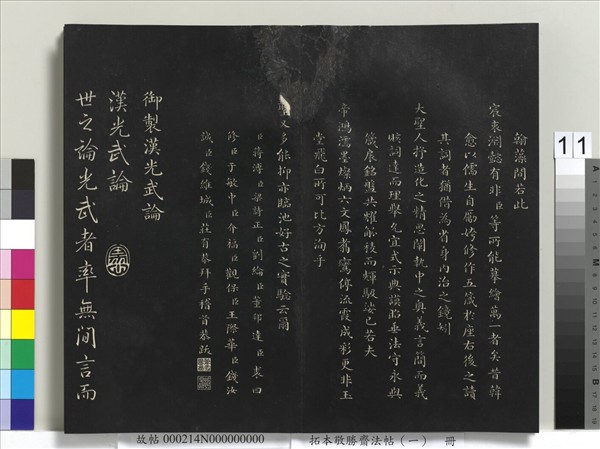 翰藻間若此
宸衷淵懿有非臣等所能摹繪萬一者矣昔韓
愈以儒生自勵姱修作五箴於座右後之讀
其詞者猶借為省身內治之鏡矧
大聖人摶造化之精思闡執中之奧義言簡而義
賅詞達而理舉允宜式示典謨昭垂法守永與
箴扆銘盤共耀
帝鴻濡墨燦炳六文鳳翥鸞停流雲成彩更非玉
堂飛白所可比方洵乎
多能抑亦臨池好古之實驗云爾
臣蔣溥臣梁詩正臣劉綸臣董邦達臣裘曰
修臣于敏中臣介福臣觀保臣王際華臣錢汝
誠臣錢維城臣莊有恭拜手稽首恭跋
御製漢光武論
漢光武論
世之論光武者率無間言而
11
故帖 000214N000000000 拓本敬勝齋法帖（一） 冊